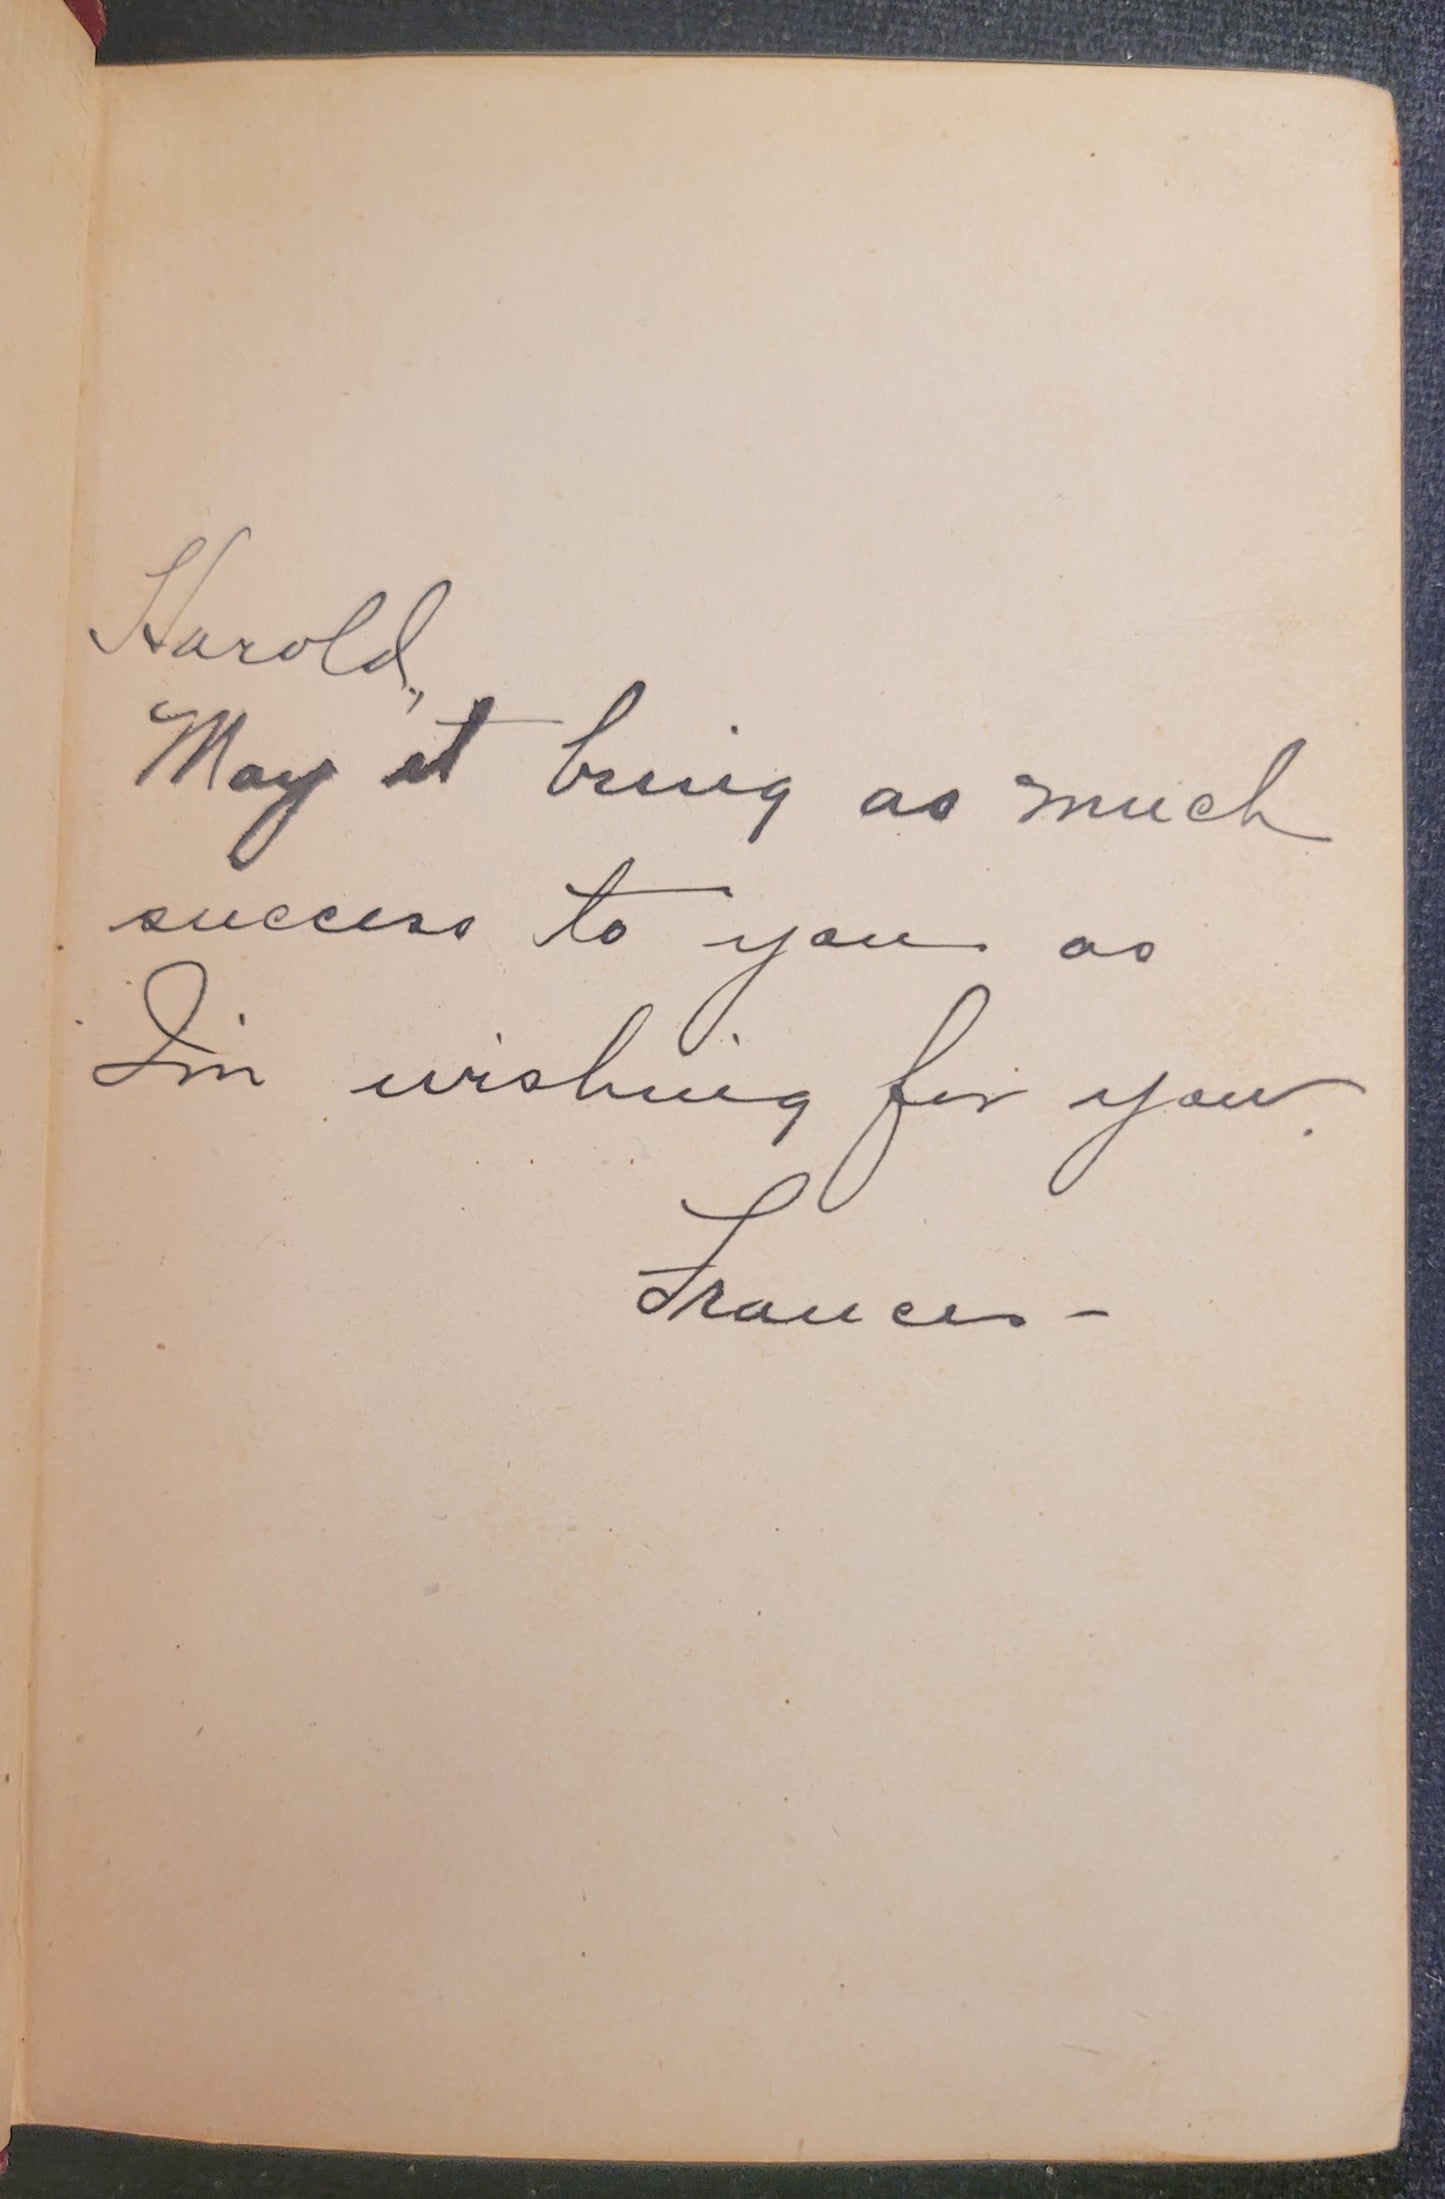 Harold,
May it bring as much
success to you as
I'm wishing for you.
Frances -